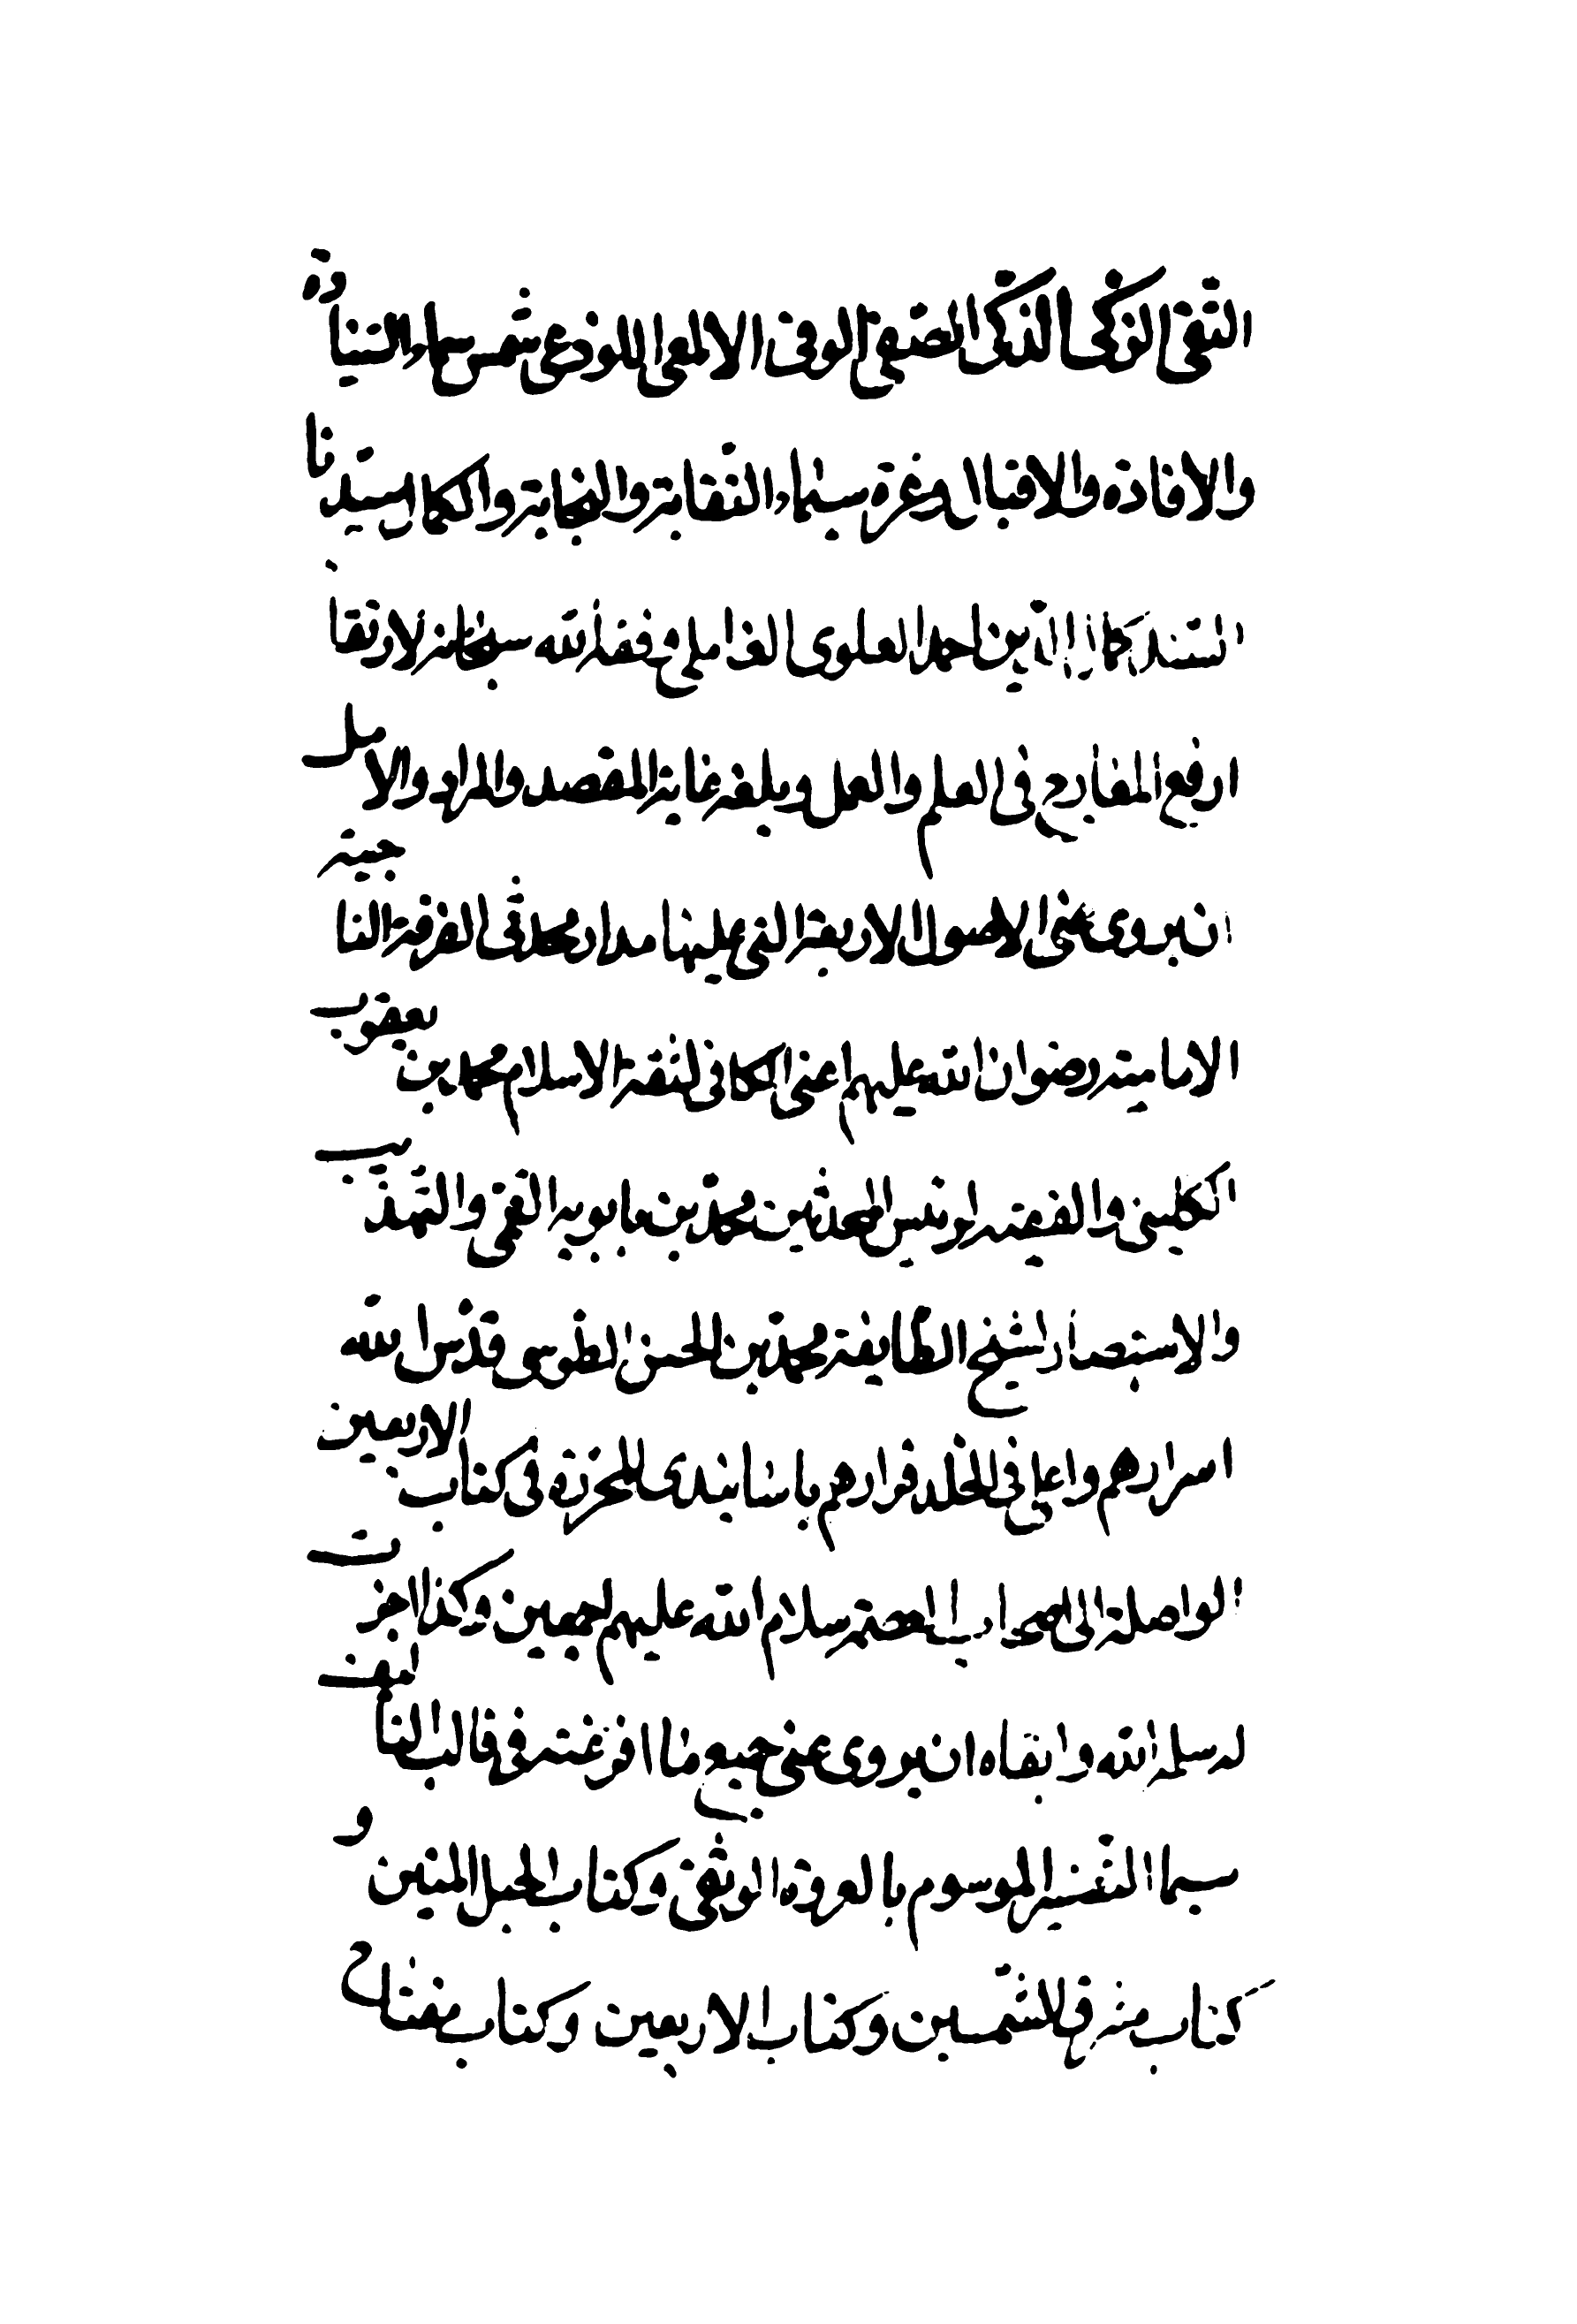 التقي الزكي الذكي الصفي الوفي الالمعي اللوذعي شمس سماء السيادة
والافادة والاقبال وغرة سيماء النقابة والنجابة والكمال سيدنا
السند كمال الدين احمد العلوي العاملي وفقه الله سبحانه لارتقاء
ارفع المعارج في العلم والعمل وبلغه غاية المقصد والمراد والامل
ان يروي عني الاصول الاربعة التي عليها مدار محدثي الفرقة الناجية
الامامية رضوان الله عليهم اعني الكافي لثقة الاسلام محمد بن يعقوب
الكليني والفقيه لرئيس المحدثين محمد بن بابويه القمي والتهذيب
والاستبصار لشيخ الطائفة محمد بن الحسن الطوسي قدس الله
اسرارهم واعلى في الخلد قرارهم باسانيدي المحررة في كتاب الاربعين
الواصلة الى اصحاب العصمة سلام الله عليهم اجمعين وكذا اجزت
له سلمه الله وابقاه ان يروي عني جميع ما افرغته في قالب التاليف
سيما التفسير الموسوم بالعروة الوثقى وكتاب الحبل المتين و
كتاب مشرق الشمسين وكتاب الاربعين وكتاب مفتاح